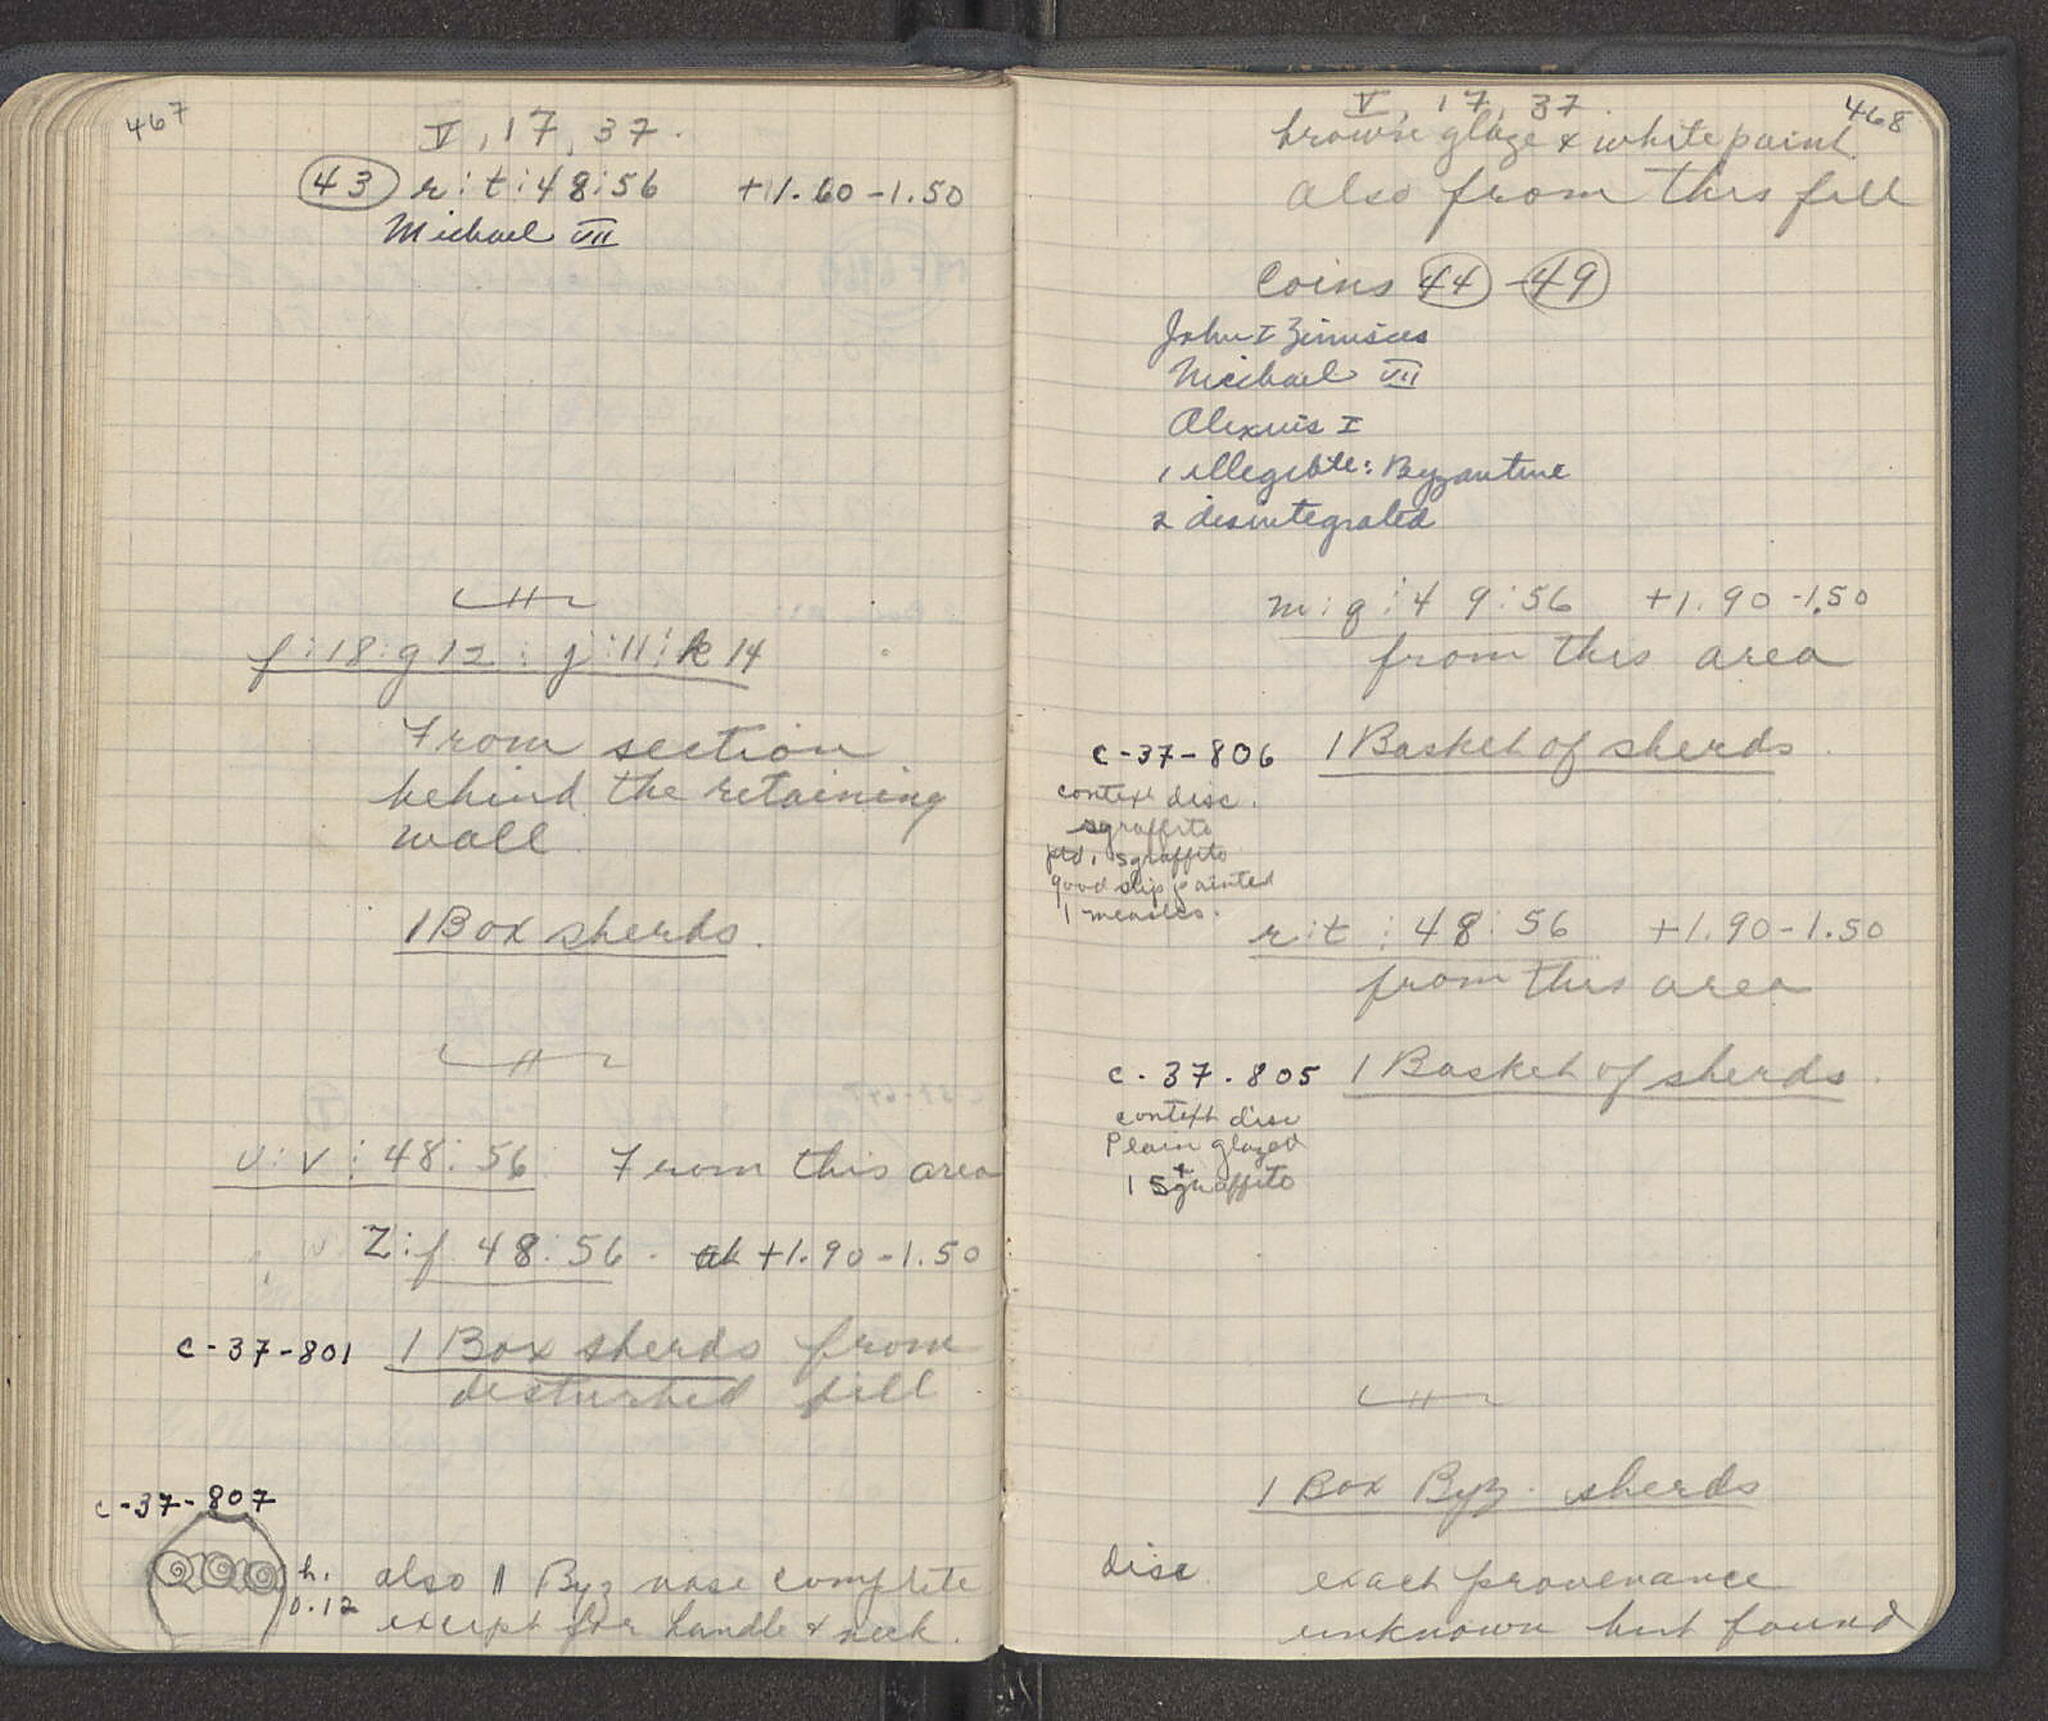 467
V, 17, 37.
43 r:t:48:56 +1.60-1.50
Michael VII
f:18:g 12: j:11:k 14
From section
behind the retaining
wall
1 Box sherds.
U:V:48:56 From this area
Z:f 48:56. +1.90-1.50
C-37-801 1 Box sherds from
disturbed fill
C-37-807
h. also 11 Byz vase complete
0.12 except for handle & neck.
V, 17, 37. 468
brown glaze & white paint
also from this fill
Coins 44 - 49
John I Zimisces
Michael VII
Alexius I
1 illegible: Byzantine
2 disintegrated
m:q:49:56 +1.90-1.50
from this area
C-37-806 1 Basket of sherds.
context disc.
sgraffito
ptd, sgraffito
good slip painted
1 measles.
r:t:48:56 +1.90-1.50
from this area
C-37-805 1 Basket of sherds.
context disc
Plain glazed
1 sgraffito
1 Box Byz. sherds
disc. exact provenance
unknown but found